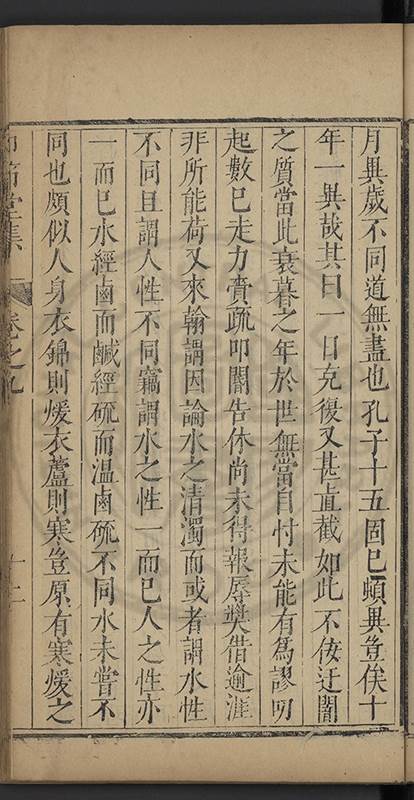 月異歲不同道無盡也孔子十五固已頓異豈俟十
年一異哉其曰一日克復又甚直截如此不佞迂闇
之質當此衰暮之年於世無當自忖未能有爲謬叨
起數已走力賫疏叩閽告休尚未得報辱奬借逾涯
非所能荷又來翰謂因論水之清濁而或者謂水性
不同且謂人性不同竊謂水之性一而已人之性亦
一而已水經鹵而鹹經硫而温鹵硫不同水未嘗不
同也頗似人身衣錦則煖衣蘆則寒豈原有寒煖之
堂集
卷之九
十二